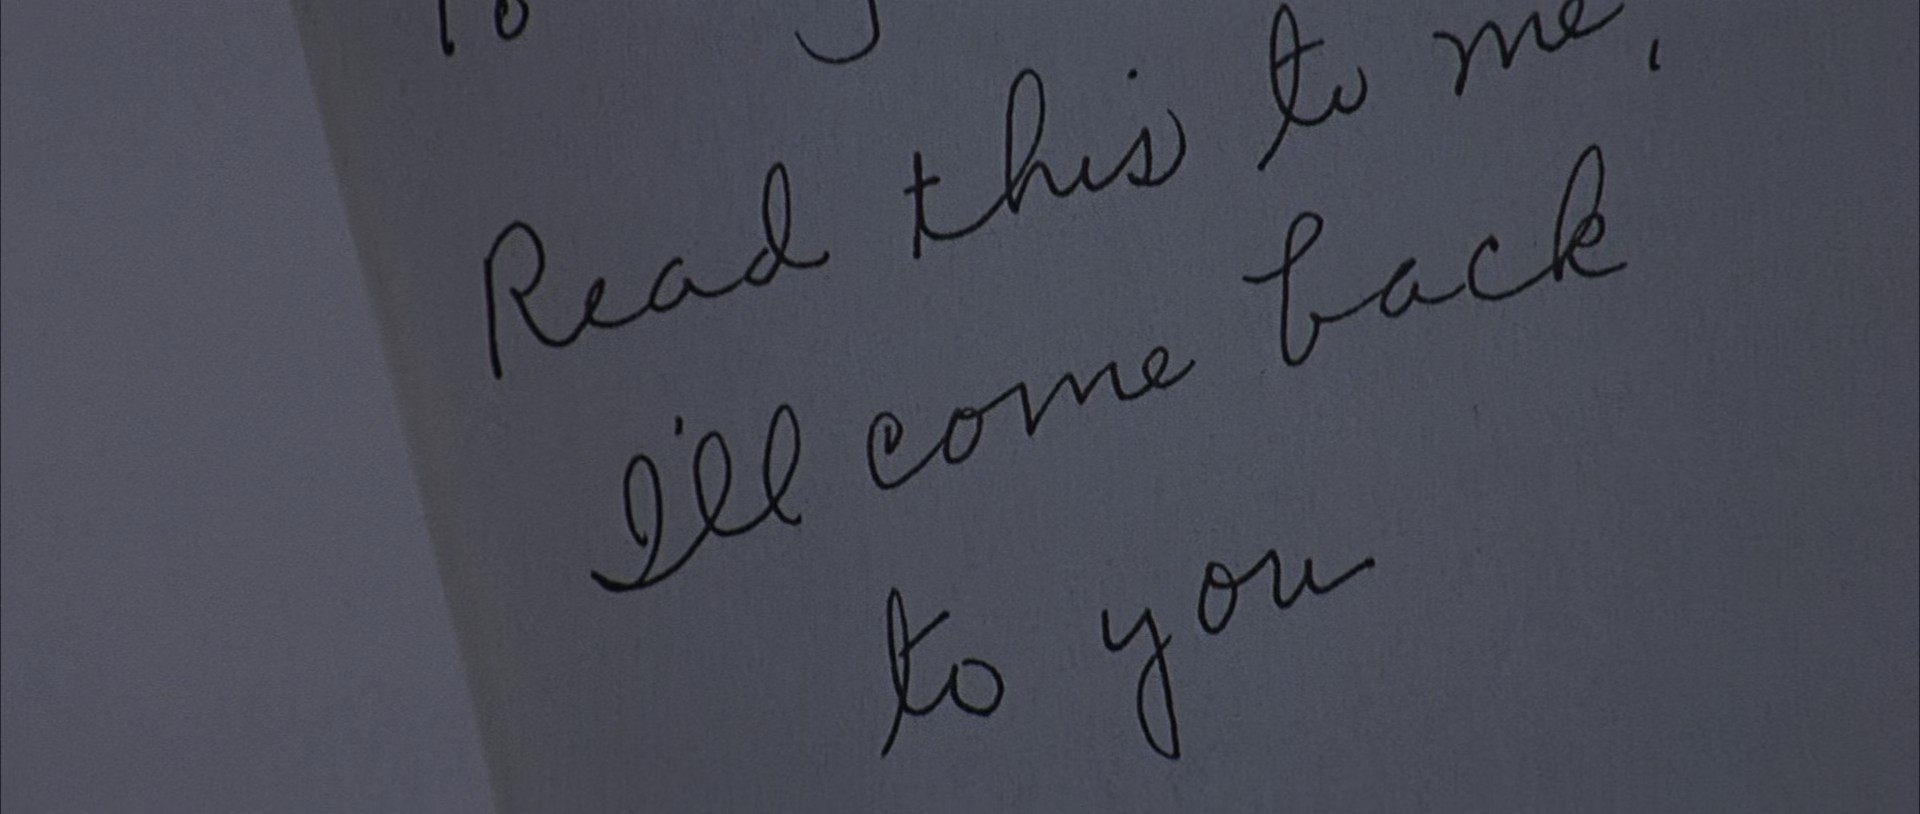 To
Read this to me,
I'll come back
to you